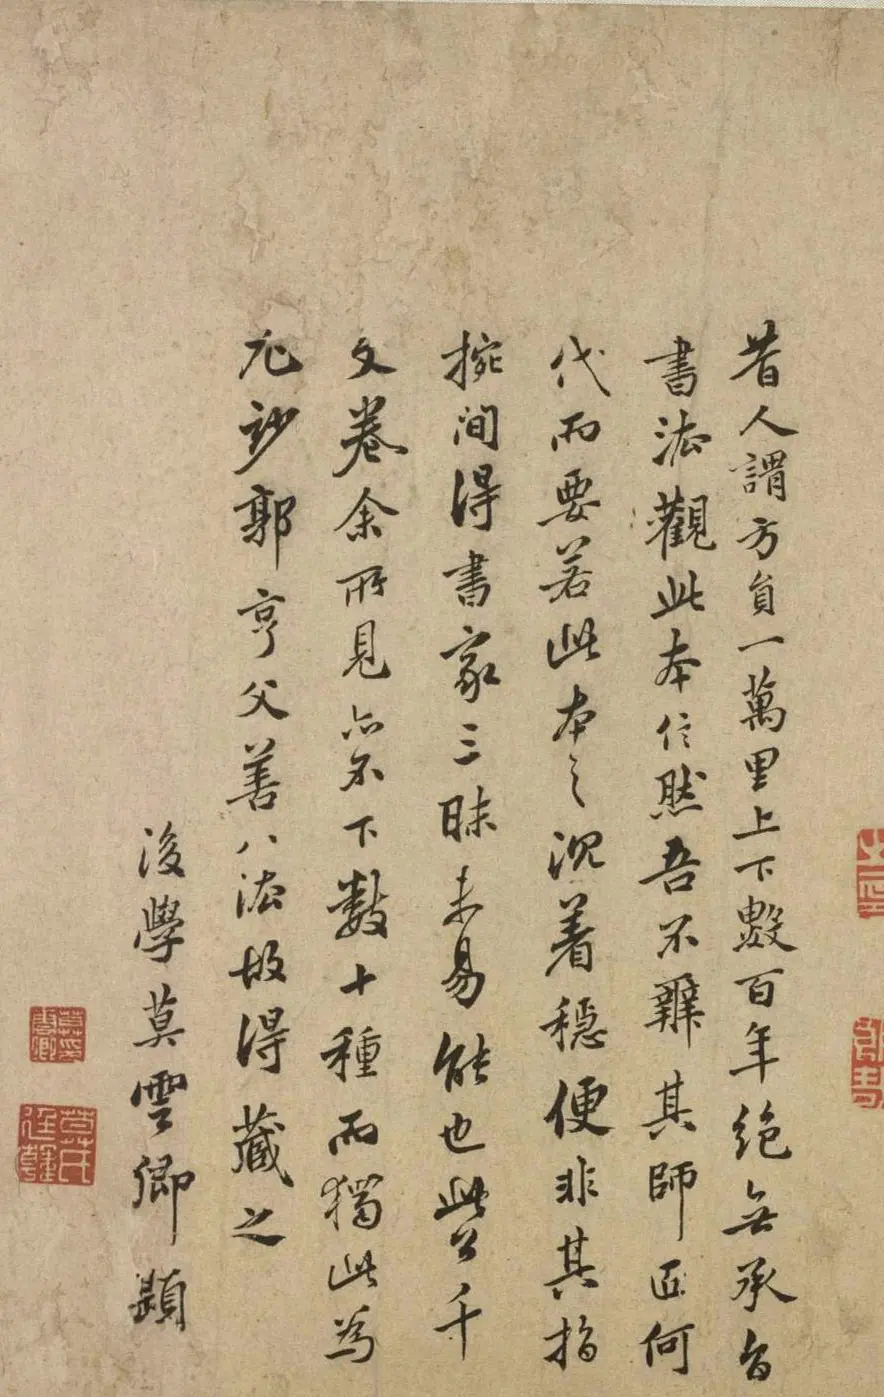 昔人謂方員一萬里上下數百年絶無承旨
書法觀此本信然吾不辨其師匠何
代而要若此本之沉着穩便非其指
捥間得書家三昧未易能也此公千
文卷余所見亦不下數十種而獨此為
尤妙郭亨父善八法故得藏之
後學莫雲卿題
莫印雲卿
莫氏廷韓